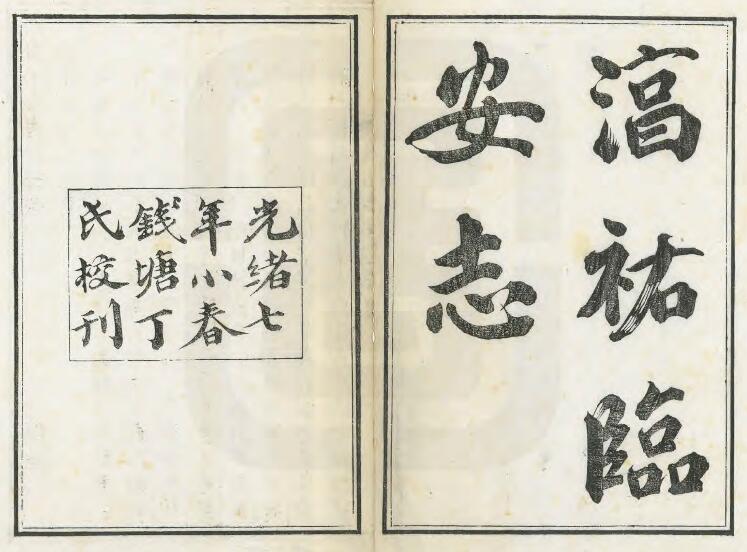 淳祐臨
安志
光緒七
年小春
錢塘丁
氏校刊